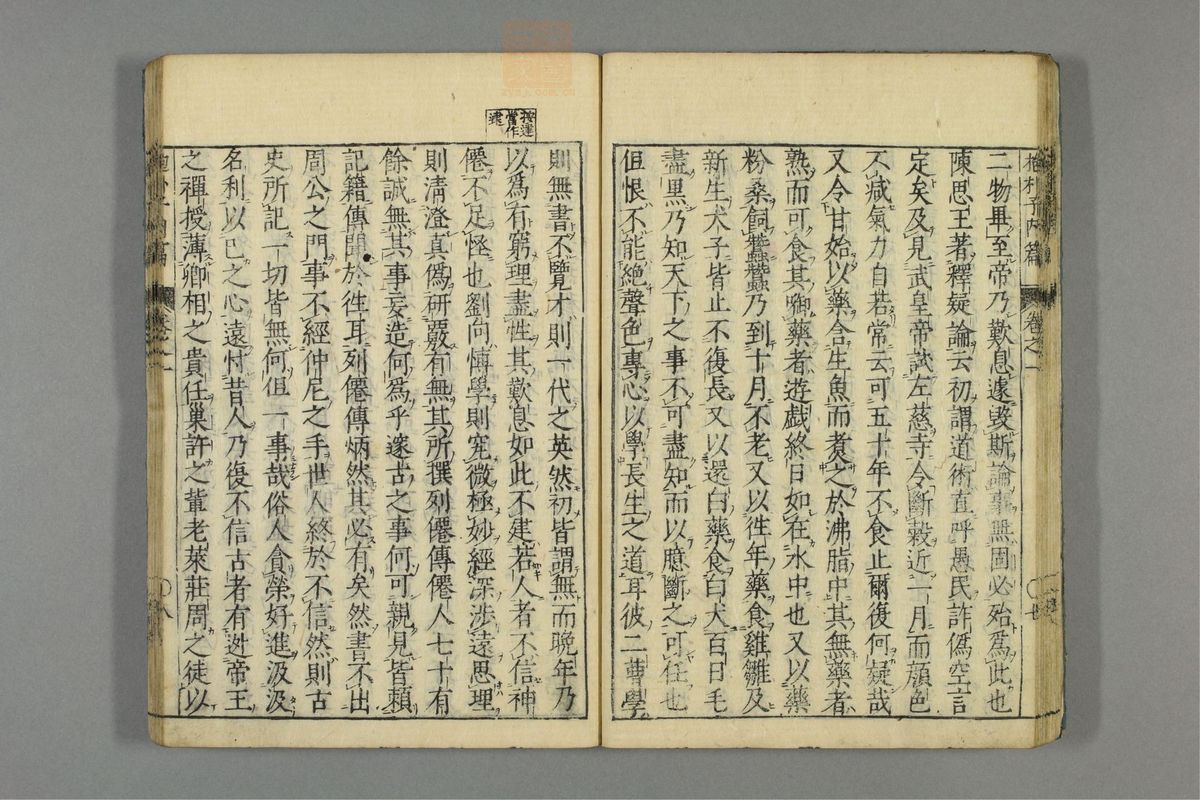 抱朴子內篇 卷之一
二物畢至帝乃歎息遽毀斯論事無固必殆爲此也
陳思王著釋疑論云初謂道術直呼愚民詐僞空言
定矣及見武皇帝試左慈等令斷穀近一月而顔色
不减氣力自若常云可五十年不食正爾復何疑哉
又令甘始以藥含生魚而煑之於沸脂中其無藥者
熟而可食其啣藥者遊戱終日如在水中也又以藥
粉桑飼蠶蠶乃到十月不老又以徃年藥食雞雛及
新生犬子皆止不復長又以還白藥食白犬百日毛
盡黒乃知天下之事不可盡知而以臆斷之可任也
但恨不能絶聲色專心以學長生之道耳彼二曹學
則無書不覽才則一代之英然初皆謂無而晩年乃
以爲有窮理盡性其歎息如此不建若人者不信神
按逮
當作
逮
僊不足怪也劉向博學則究微極妙經深涉遠思理
則清澄真僞研覈有無其所撰列僊傳僊人七十有
餘誠無其事妄造何爲乎邃古之事何可親見皆賴
記籍傳聞於徃耳列僊傳炳然其必有矣然書不出
周公之門事不經仲尼之手世人終於不信然則古
史所記一切皆無何但一事哉俗人貪榮好進汲汲
名利以已之心遠忖昔人乃復不信古者有逃帝王
之禪授薄卿相之貴任巢許之軰老萊莊周之徒以
八